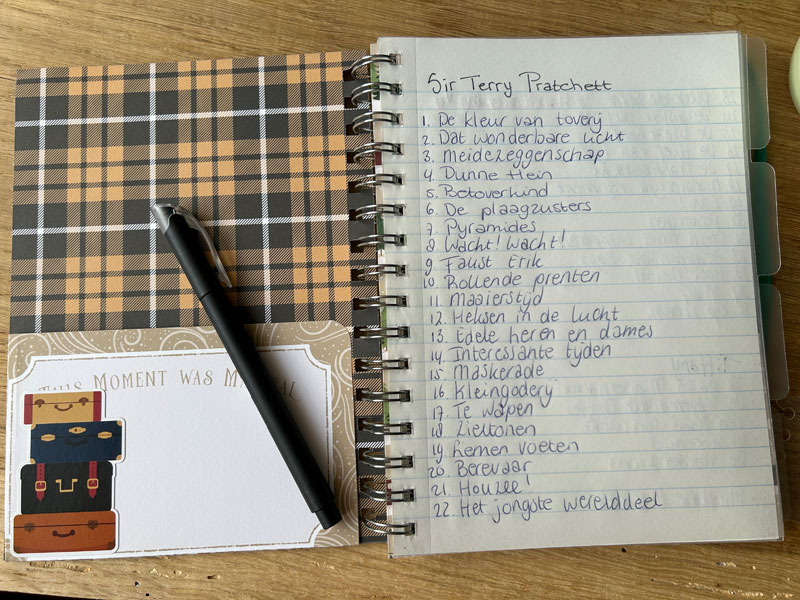 Sir Terry Pratchett
1. De kleur van toverij
2. Dat wonderbare licht
3. Meidezeggenschap
4. Dunne Hein
5. Betoverkind
6. De plaagzusters
7. Pyramides
8. Wacht! Wacht!
9. Faust Erik
10. Rollende prenten
11. Maaierstijd
12. Heksen in de lucht
13. Edele heren en dames
14. Interessante tijden
15. Maskerade
16. Kleingoderij
17. Te wapen
18. Zieltonen
19. Lemen voeten
20. Berevaar
21. Houzee!
22. Het jongste werelddeel
THIS MOMENT WAS